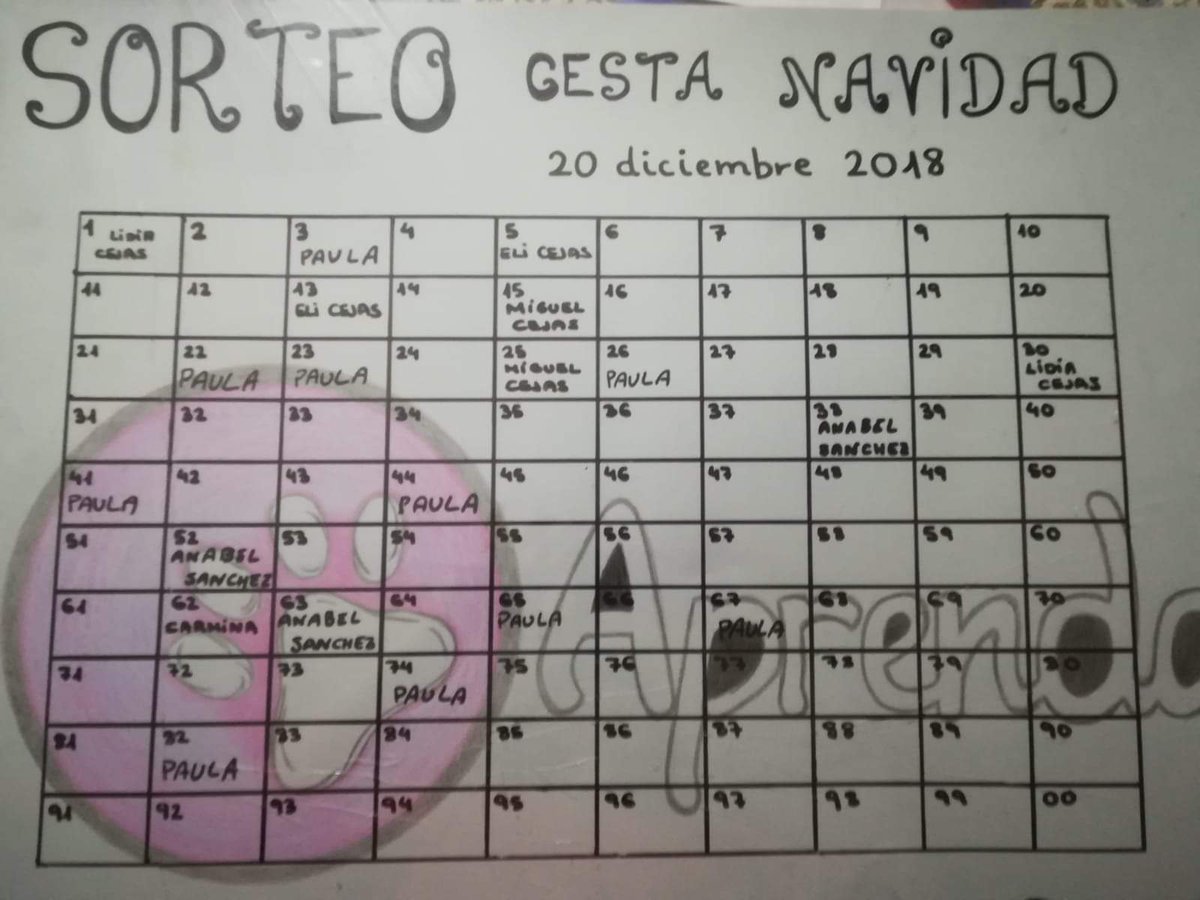 SORTEO CESTA NAVIDAD
20 diciembre 2018
1 LIDIA CEJAS 2 3 PAULA 4 5 ELI CEJAS 6 7 8 9 10
11 12 13 ELI CEJAS 14 15 MIGUEL CEJAS 16 17 18 19 20
21 22 PAULA 23 PAULA 24 25 MIGUEL CEJAS 26 PAULA 27 28 29 30 LIDIA CEJAS
31 32 33 34 35 36 37 38 ANABEL SANCHEZ 39 40
41 PAULA 42 43 44 PAULA 45 46 47 48 49 50
51 52 ANABEL SANCHEZ 53 54 55 56 57 58 59 60
61 62 CARMINA 63 ANABEL SANCHEZ 64 65 PAULA 66 67 PAULA 68 69 70
71 72 73 74 PAULA 75 76 77 78 79 80
81 82 PAULA 83 84 85 86 87 88 89 90
91 92 93 94 95 96 97 98 99 00
Aprenda